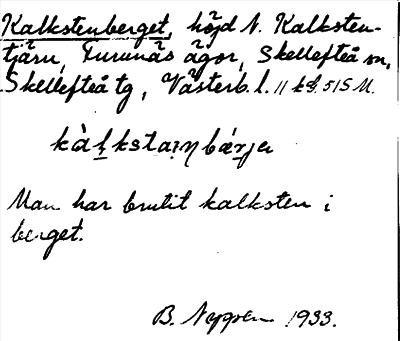 Kalkstenberget, höjd N. Kalksten-
tjärn, Furunäs ägor, Skellefteå sn,
Skellefteå tg, Västerb. l. 11 51S M.
Man har brutit kalksten i
berget.
B. Nygren 1933.